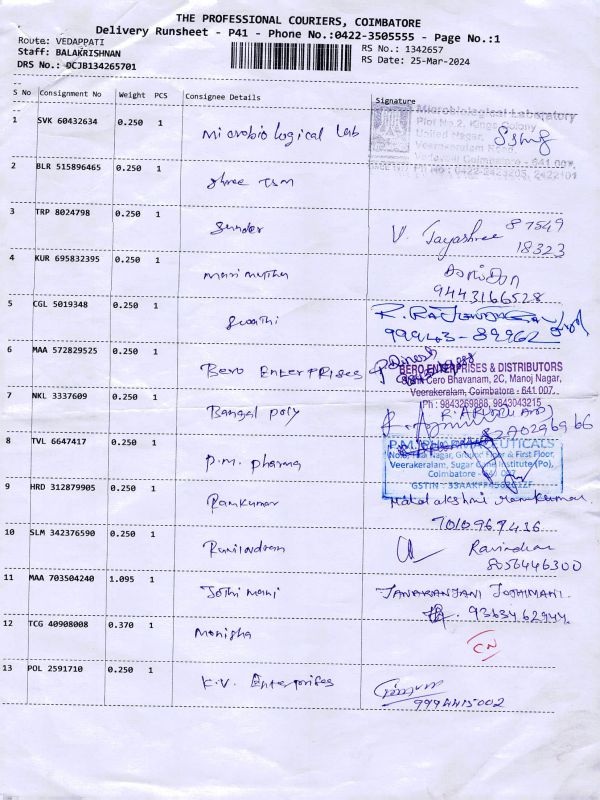 THE PROFESSIONAL COURIERS, COIMBATORE
Delivery Runsheet - P41 - Phone No.:0422-3505555 - Page No.:1
Route: VEDAPPATI
Staff: BALAKRISHNAN
DRS No.: DCJB134265701
RS No.: 1342657
RS Date: 25-Mar-2024
S No Consignment No Weight PCS Consignee Details Signature
1 SVK 60432634 0.250 1 Microbiological Lab
Microbiological Laboratory
Plot No.2, Kings Colony
United Nagar,
Veerakeralam Road
Coimbatore - 641 007.
2 BLR 515896465 0.250 1 Shree TSM
3 TRP 8024798 0.250 1 Sunder V. Jayashree 87549
18323
4 KUR 695832395 0.250 1 Marimuthu
9443166528
5 CGL 5019348 0.250 1 Swathi
99943-89962
6 MAA 572829525 0.250 1 Bero Enterprises Dinesh
BERO ENTERPRISES & DISTRIBUTORS
Cero Bhavanam, 2C, Manoj Nagar,
Veerakeralam, Coimbatore - 641 007.
Ph : 9843269888, 9843043215
7 NKL 3337609 0.250 1 Bangal Poly
8 TVL 6647417 0.250 1 P.M. Pharma
Veerakeralam, Sugar Cane Institute(Po),
9 HRD 312879905 0.250 1 Ramkumar Mahalakshmi Ramkumar
7010969436
10 SLM 342376590 0.250 1 Ravindran Ravindran
8056446300
11 MAA 703504240 1.095 1 Jothimani JANARANJANI JOTHIMANI
9363462944
12 TCG 40908008 0.370 1 Monisha CN
13 POL 2591710 0.250 1 K.V. Enterprises
9994415002